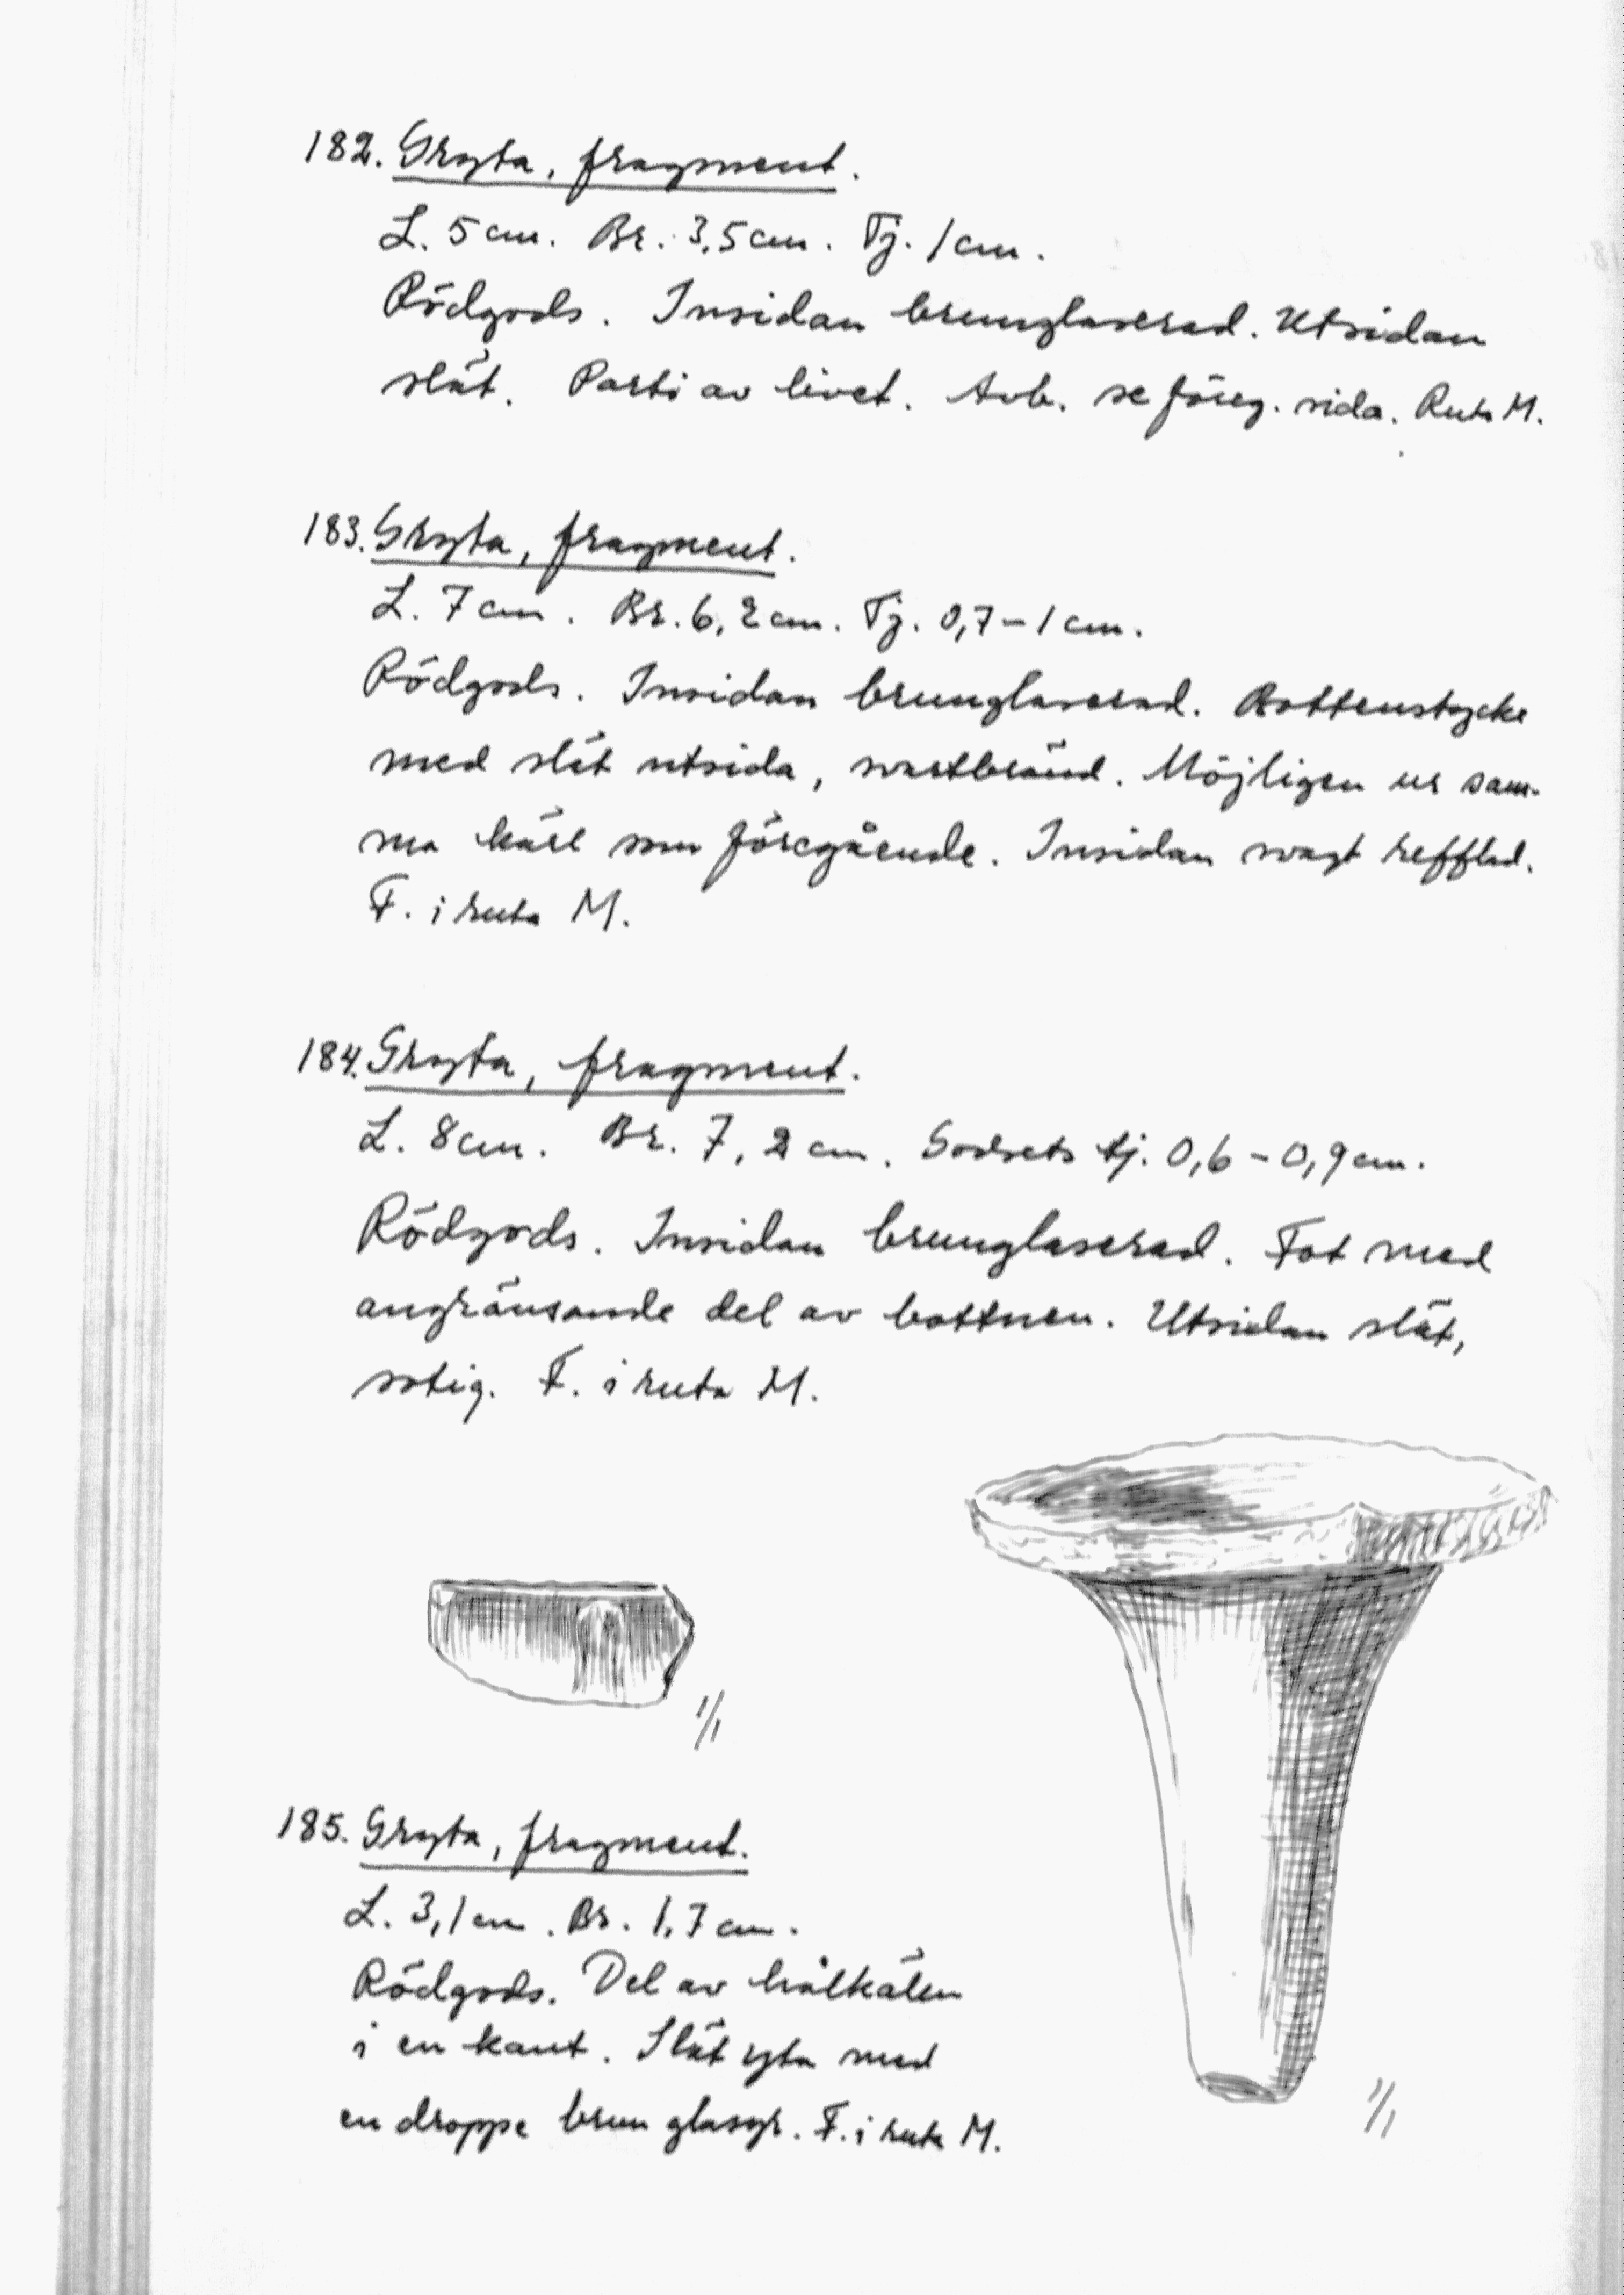 182. Gryta, fragment.
L. 5 cm. Br. 3,5 cm. Tj. 1 cm.
Rödgods. Insidan brunglaserad. Utsidan
slät. Parti av livet. Avb. se föreg. sida. Ruta M.
183. Gryta, fragment.
L. 7 cm. Br. 6,2 cm. Tj. 0,7 – 1 cm.
Rödgods. Insidan brunglaserad. Bottenstycke
med slät utsida, svartbränd. Möjligen ur sam-
ma kärl som föregående. Insidan svagt refflad.
F. i ruta M.
184. Gryta, fragment.
L. 8 cm. Br. 7,2 cm. Godsets tj. 0,6 – 0,9 cm.
Rödgods. Insidan brunglaserad. Fot med
angränsande del av bottnen. Utsidan slät,
sotig. F. i ruta M.
1/1
185. Gryta, fragment.
L. 3,1 cm. Br. 1,7 cm.
Rödgods. Del av hålkälen
i en kant. Slät yta med
en droppe brun glasyr. F. i ruta M.
1/1